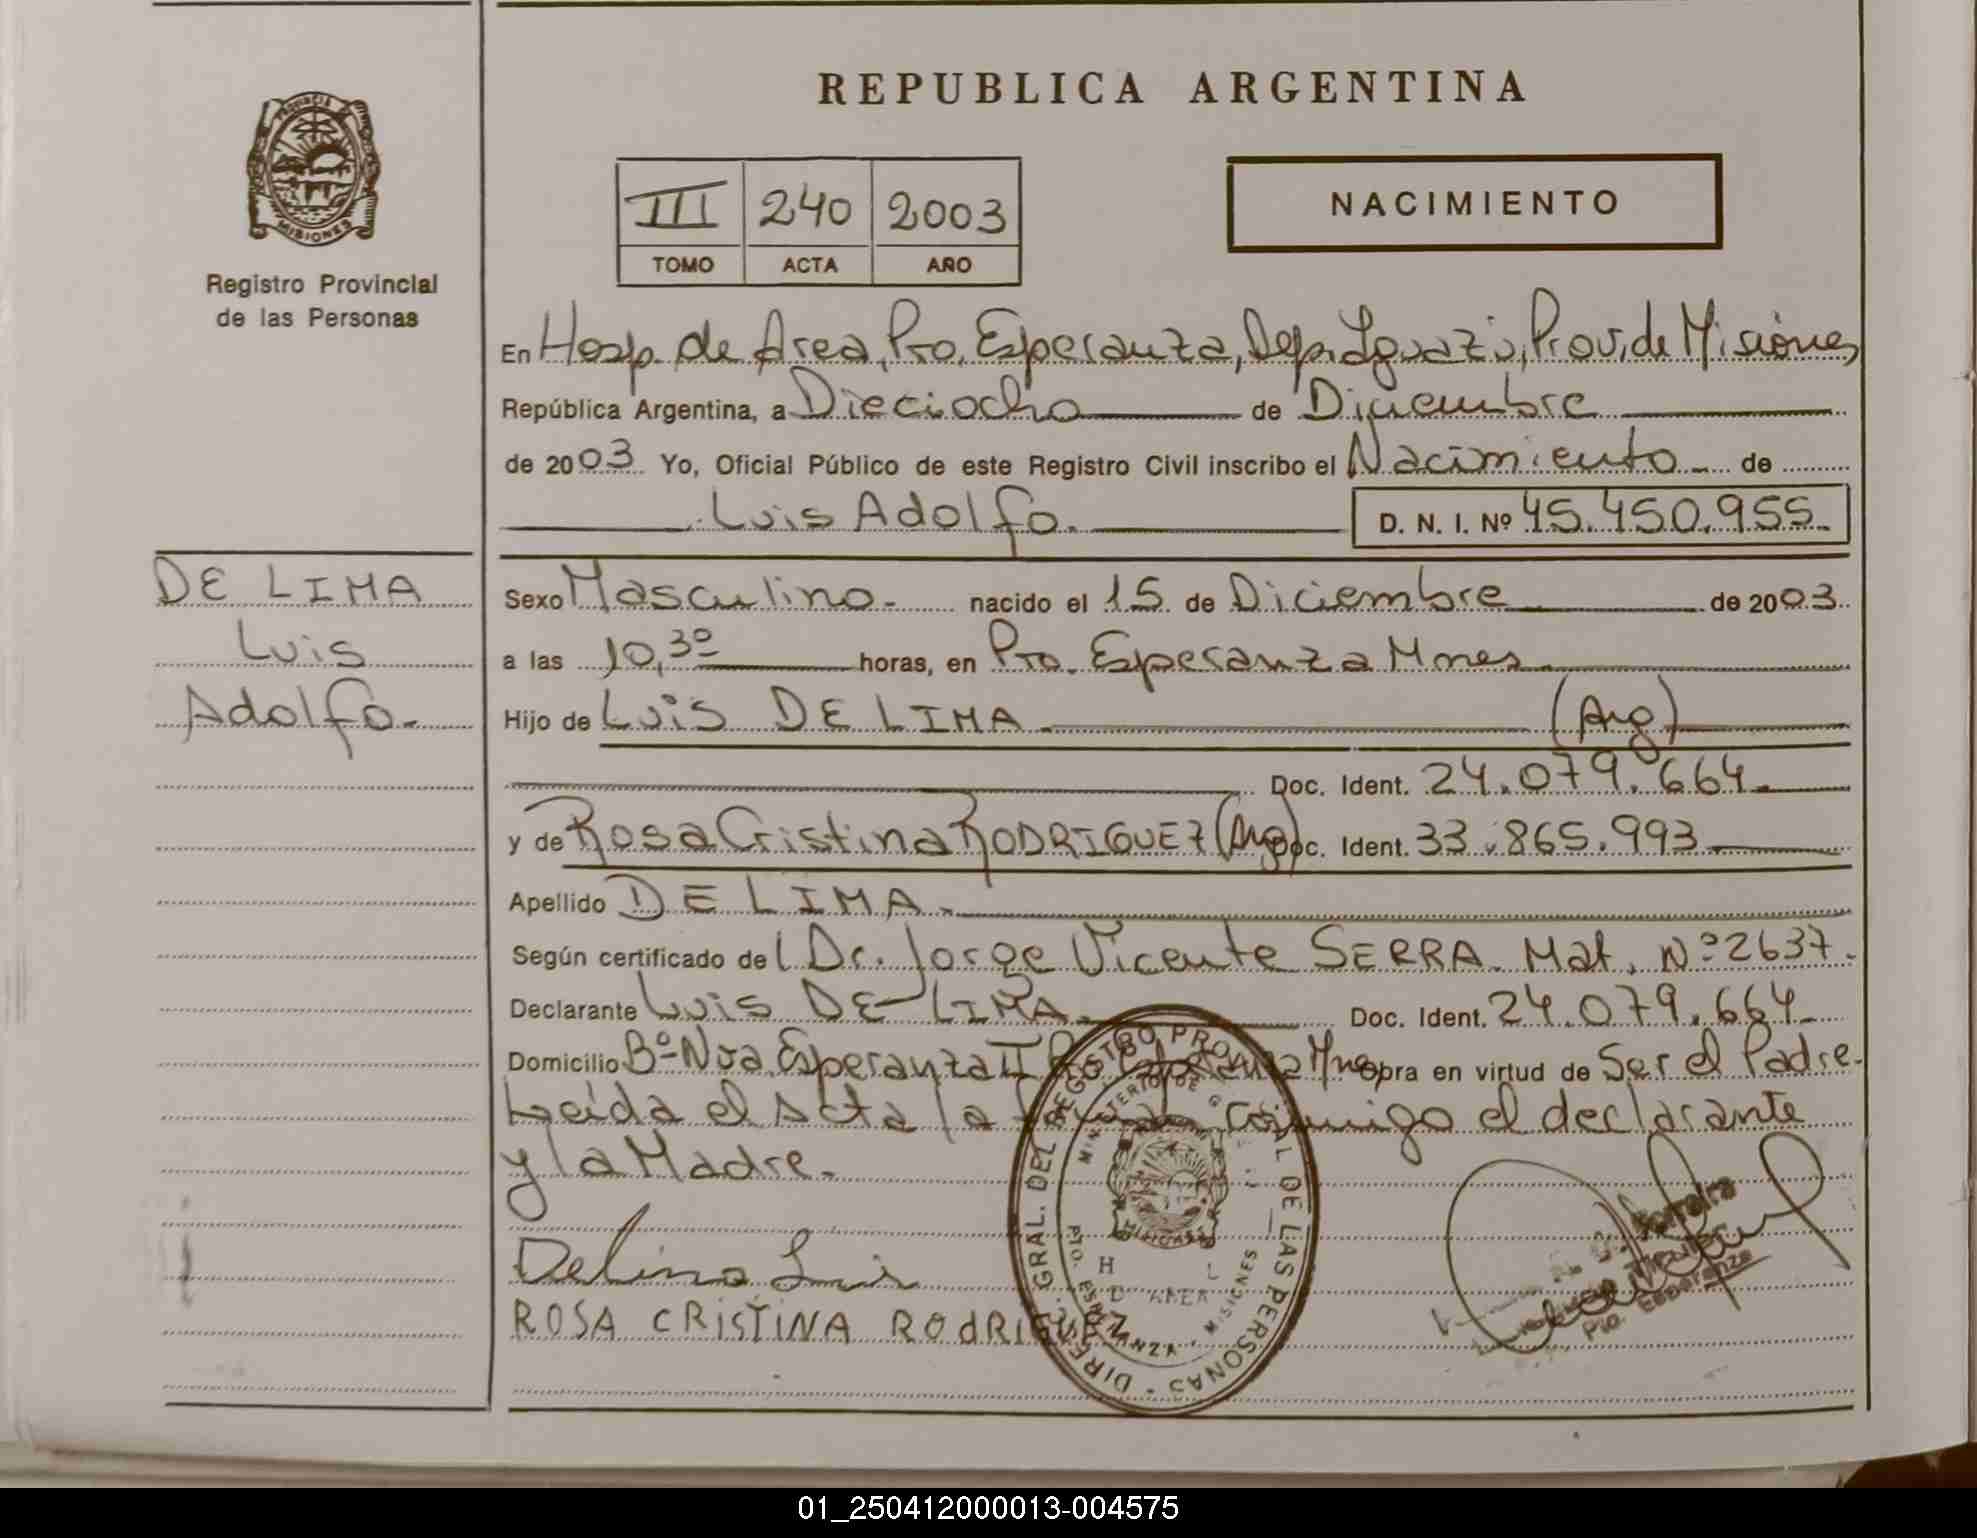 REPUBLICA ARGENTINA
PROVINCIA
MISIONES
Registro Provincial
de las Personas
III 240 2003
TOMO ACTA AÑO
NACIMIENTO
En Hosp. de Area, Pto. Esperanza, Dep. Iguazú, Prov. de Misiones
República Argentina, a Dieciocho de Diciembre
de 2003 Yo, Oficial Público de este Registro Civil inscribo el Nacimiento de
Luis Adolfo.
D. N. I. Nº 45.450.955.
DE LIMA
Luis
Adolfo.
Sexo Masculino. nacido el 15 de Diciembre de 2003
a las 10,30 horas, en Pto. Esperanza Mnes
Hijo de Luis DE LIMA (Arg)
Doc. Ident. 24.079.664.
y de Rosa Cristina RODRIGUEZ (Arg) Doc. Ident. 33.865.993
Apellido DE LIMA.
Según certificado del Dr. Jorge Vicente SERRA Mat. Nº 2637.
Declarante Luis DE LIMA. Doc. Ident. 24.079.664
Domicilio Bº Nva. Esperanza II Mnes obra en virtud de Ser el Padre.
Leida el Acta la conmigo el declarante
y la Madre.
ROSA CRISTINA RODRIGUEZ
DIREC. GRAL. DEL REGISTRO PROVINCIAL DE LAS PERSONAS
MINISTERIO DE
PTO. ESPERANZA - MISIONES
Pto. Esperanza
01_250412000013-004575